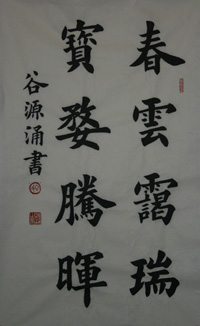 春雲靄瑞
寶婺騰暉
谷源涌書